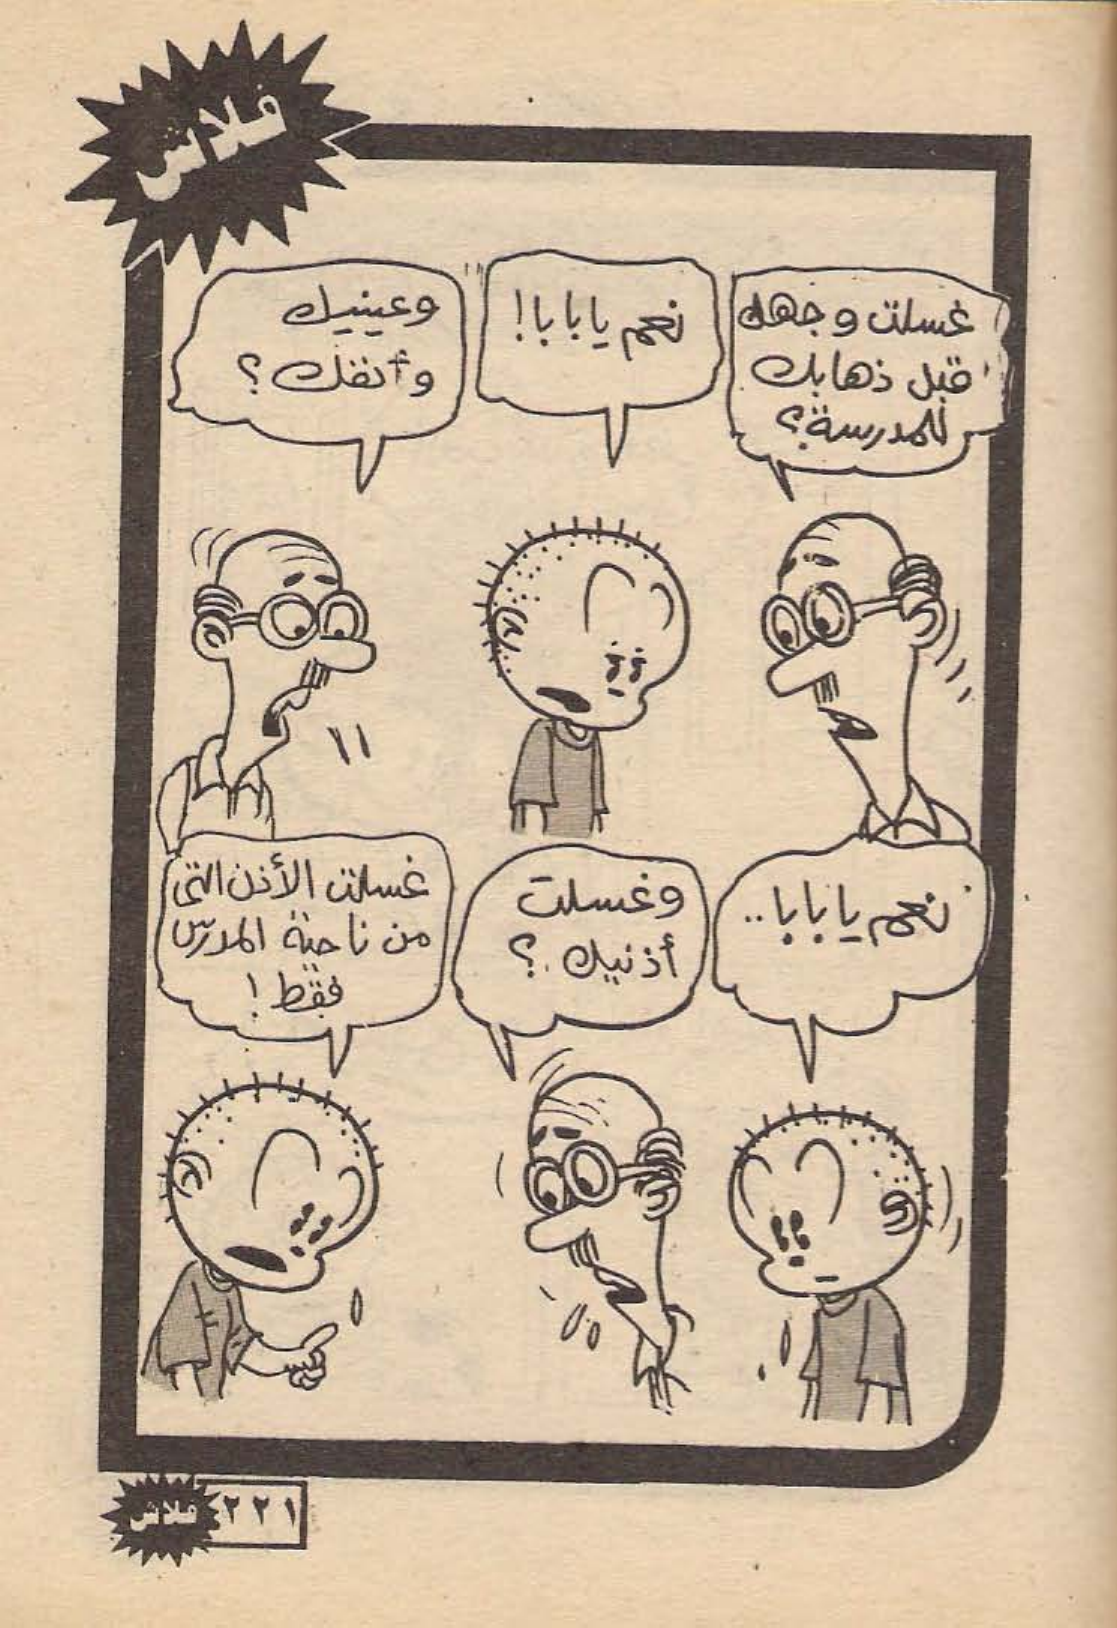 فلاش
غسلت وجهك
قبل ذهابك
للمدرسة؟
نعم يا بابا!
وعينيك
وأنفك؟
نعم يا بابا..
وغسلت
أذنيك.؟
غسلت الأذن التى
من ناحية المدرس
فقط!
فلاش
٢٢١